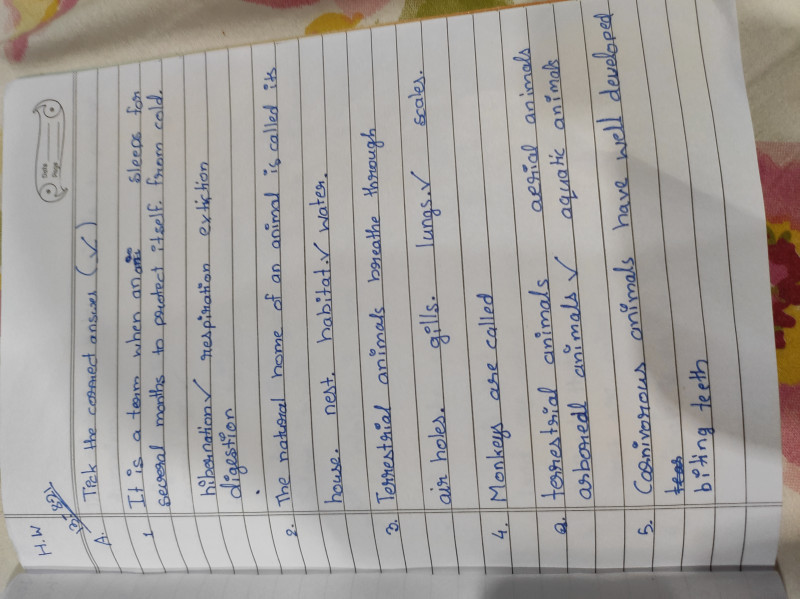 H.W
Date
Page
A. Tick the correct answer (✓)
1. It is a term when an sleeps for
several months to protect itself. from cold.
hibernation✓ respiration extiction
digestion
2. The natural home of an animal is called its
house. nest. habitat.✓ water.
3. Terrestrial animals breathe through
air holes. gills. lungs.✓ scales.
4. Monkeys are called
a. terrestrial animals aerial animals
arboreal animals ✓ aquatic animals
5. Carnivorous animals have well developed
biting teeth